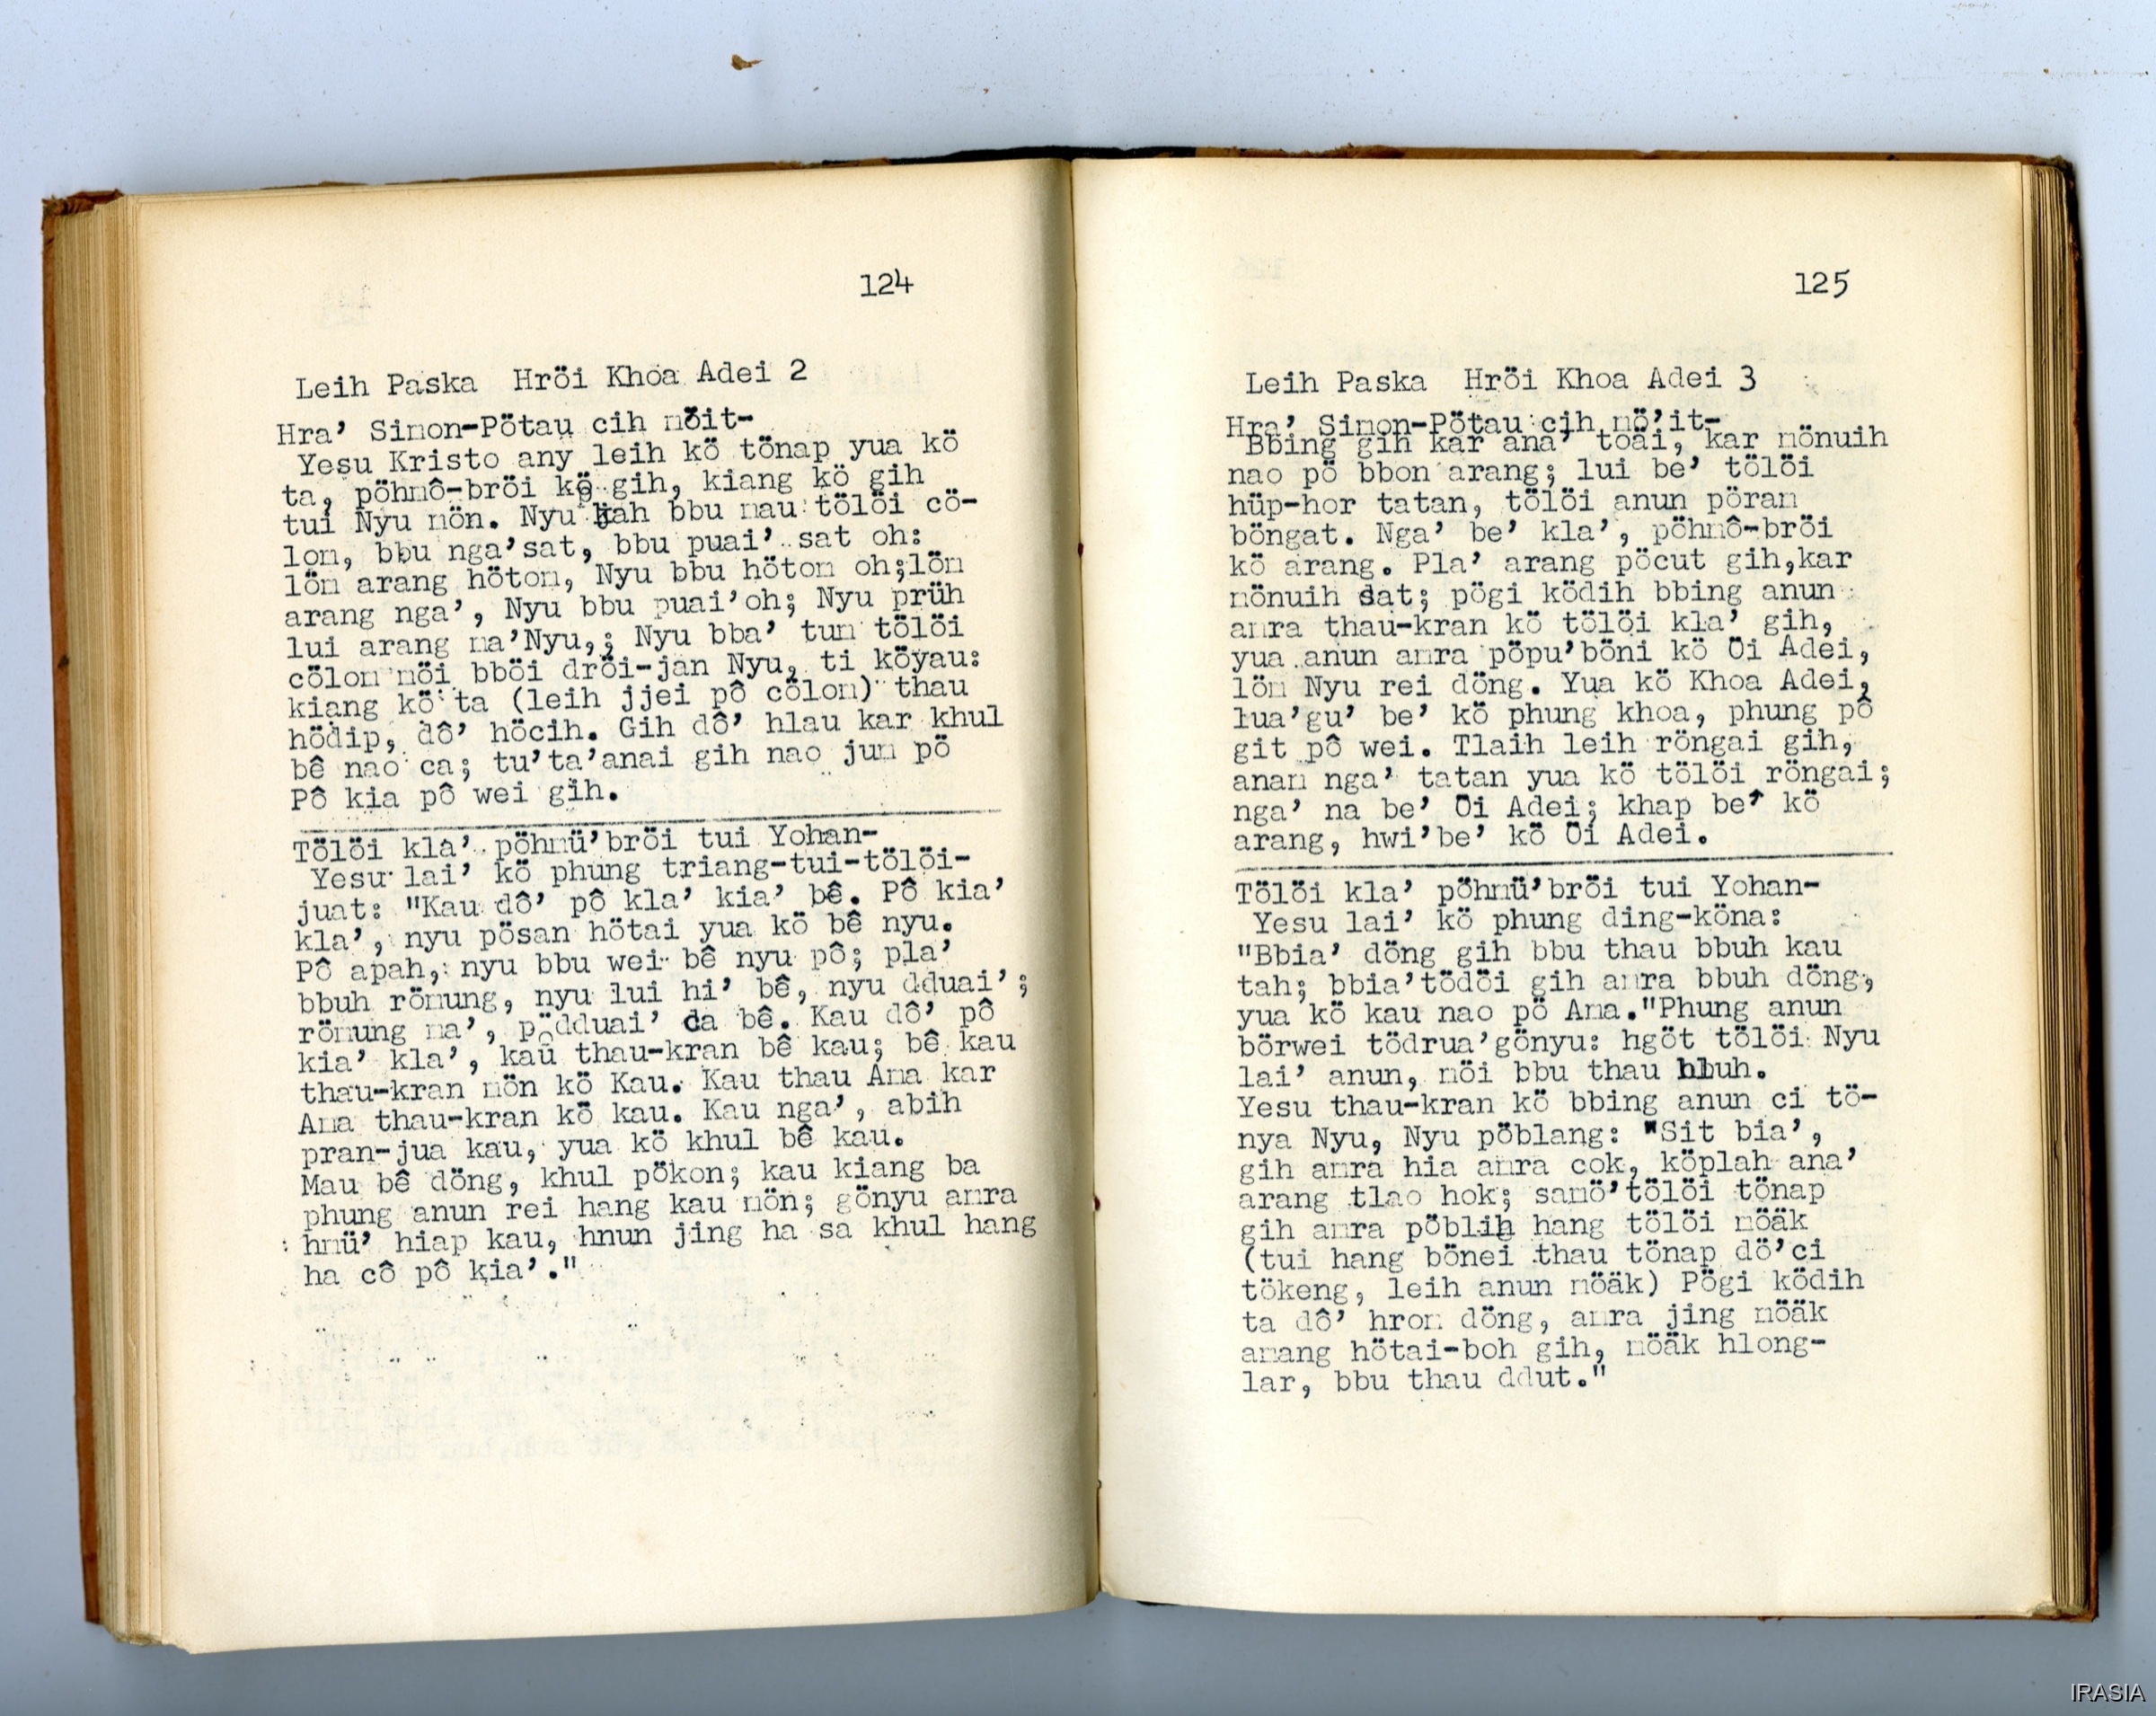 124
Leih Paska Hröi Khoa Adei 2
Hra' Simon-Pötau cih möit-
Yesu Kristo any leih kö tönap yua kö
ta, pöhmô-bröi kö gih, kiang kö gih
tui Nyu mön. Nyu jah bbu mau tölöi cö-
lom, bbu nga'sat, bbu puai' sat oh:
löm arang hötom, Nyu bbu hötom oh;löm
arang nga', Nyu bbu puai'oh; Nyu prüh
lui arang ma'Nyu,; Nyu bba' tum tölöi
cölom möi bböi dröi-jan Nyu, ti köyau:
kiang kö ta (leih jjei pô cölom) thau
hödip, dô' höcih. Gih dô' hlau kar khul
bê nao ca; tu'ta'anai gih nao jum pö
Pô kia pô wei gih.
Tölöi kla' pöhmü'bröi tui Yohan-
Yesu lai' kö phung triang-tui-tölöi-
juat: "Kau dô' pô kla' kia' bê. Pô kia'
kla', nyu pösan hötai yua kö bê nyu.
Pô apah, nyu bbu wei bê nyu pô; pla'
bbuh römung, nyu lui hi' bê, nyu dduai';
römung ma', pödduai' da bê. Kau dô' pô
kia' kla', kau thau-kran bê kau; bê kau
thau-kran mön kö Kau. Kau thau Ama kar
Ama thau-kran kö kau. Kau nga', abih
pran-jua kau, yua kö khul bê kau.
Mau bê döng, khul pökon; kau kiang ba
phung anun rei hang kau mön; gönyu amra
hmü' hiap kau, hnun jing ha sa khul hang
ha cô pô kia'."
125
Leih Paska Hröi Khoa Adei 3
Hra' Simon-Pötau cih mö'it-
Bbing gih kar ana' toäi, kar mönuih
nao pö bbon arang; lui be' tölöi
hüp-hor tatan, tölöi anun pöran
böngat. Nga' be' kla', pöhmô-bröi
kö arang. Pla' arang pöcut gih,kar
mönuih sat; pögi ködih bbing anun
amra thau-kran kö tölöi kla' gih,
yua anun amra pöpu'böni kö Öi Adei,
löm Nyu rei döng. Yua kö Khoa Adei,
lua'gu' be' kö phung khoa, phung pô
git pô wei. Tlaih leih röngai gih,
anam nga' tatan yua kö tölöi röngai;
nga' na be' Öi Adei; khap be' kö
arang, hwi'be' kö Öi Adei.
Tölöi kla' pöhmü'bröi tui Yohan-
Yesu lai' kö phung ding-köna:
"Bbia' döng gih bbu thau bbuh kau
tah; bbia'tödöi gih amra bbuh döng,
yua kö kau nao pö Ama."Phung anun
börwei tödrua'gönyu: hgöt tölöi Nyu
lai' anun, möi bbu thau hluh.
Yesu thau-kran kö bbing anun ci tö-
nya Nyu, Nyu pöblang: "Sit bia',
gih amra hia amra cok, köplah ana'
arang tlao hok; samö'tölöi tönap
gih amra pöblih hang tölöi möäk
(tui hang bönei thau tönap dö'ci
tökeng, leih anun möäk) Pögi ködih
ta dô' hrom döng, amra jing möäk
amang hötai-boh gih, möäk hlong-
lar, bbu thau ddut."
IRASIA